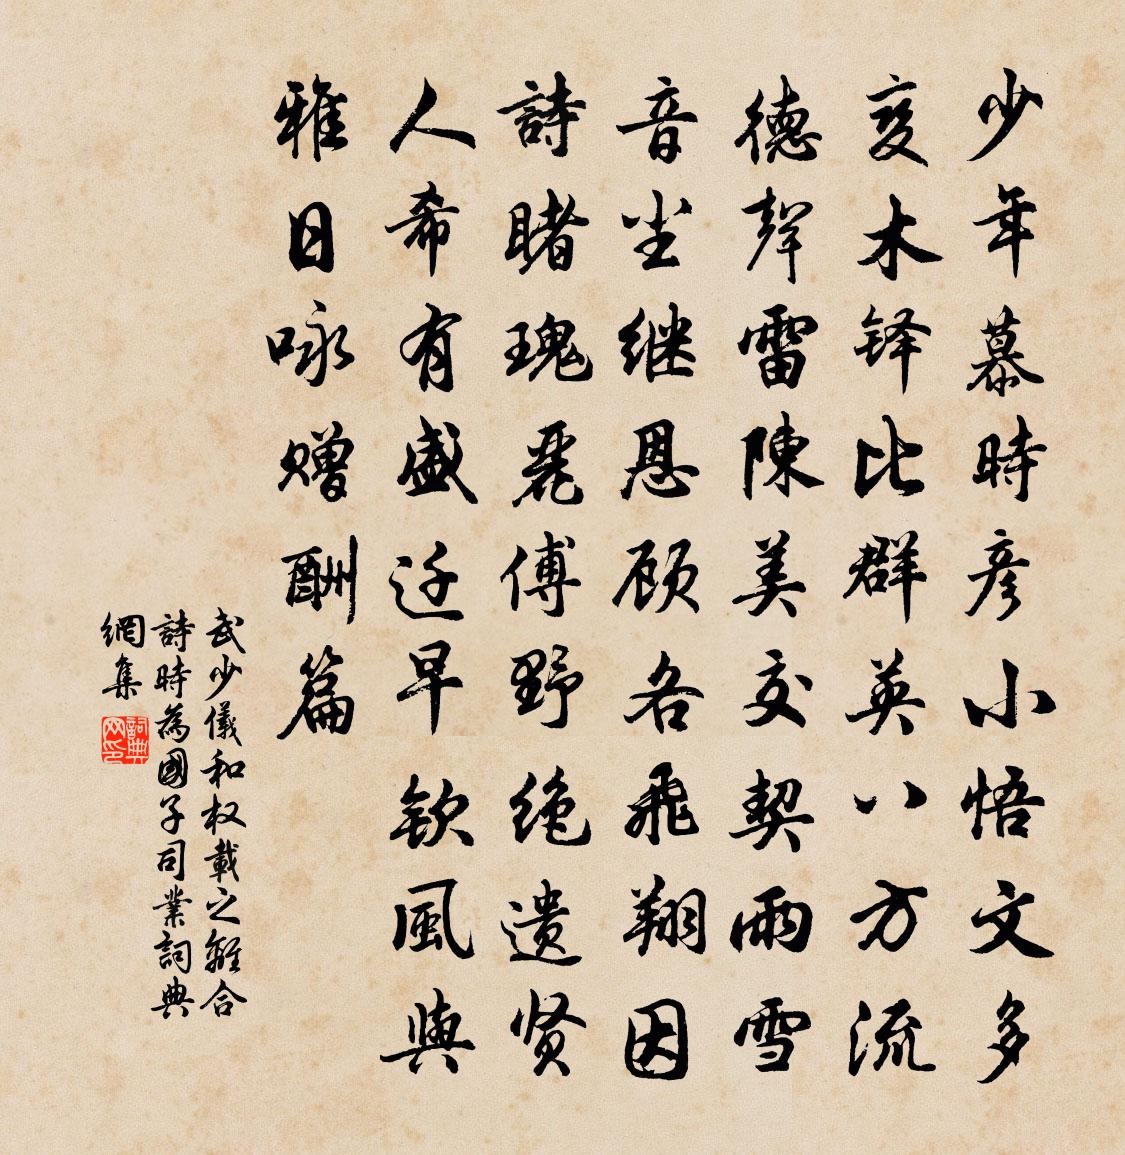 少年慕時彦小悟文多
变木铎比群英八方流
德聲雷陳美交契雨雪
音尘继恩顾各飛翔因
詩睹瑰麗傅野绝遗贤
人希有盛迁早钦風與
雅日咏赠酬篇
武少儀和权載之離合
詩時為國子司業詞典
網集
詞典
网印